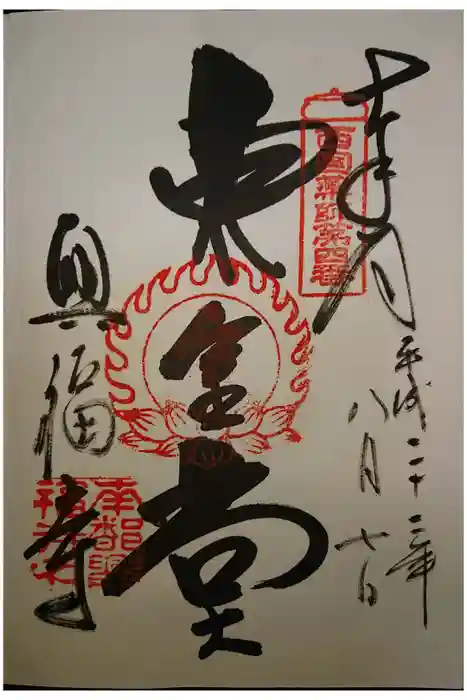 奉拝
西国薬師第四番
平成二十二年
八月七日
東金堂
興福寺